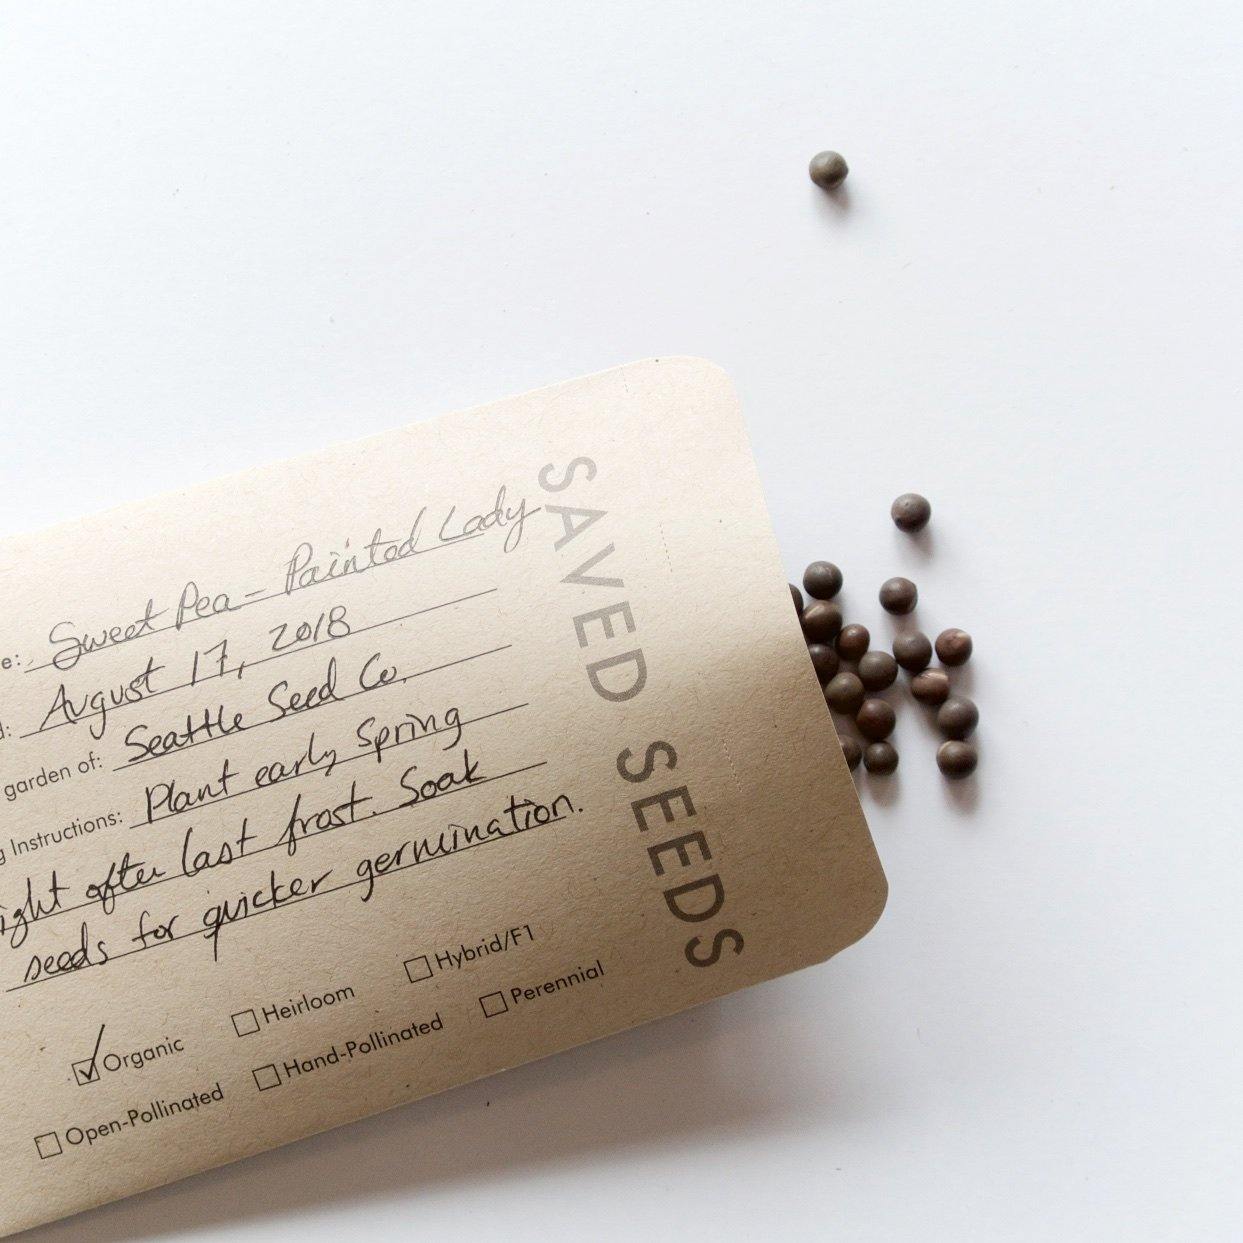 e: Sweet Pea - Painted Lady
d: August 17, 2018
garden of: Seattle Seed Co.
g Instructions: Plant early spring
right after last frost. Soak
seeds for quicker germination.
Organic Heirloom Hybrid/F1
Open-Pollinated Hand-Pollinated Perennial
SAVED SEEDS